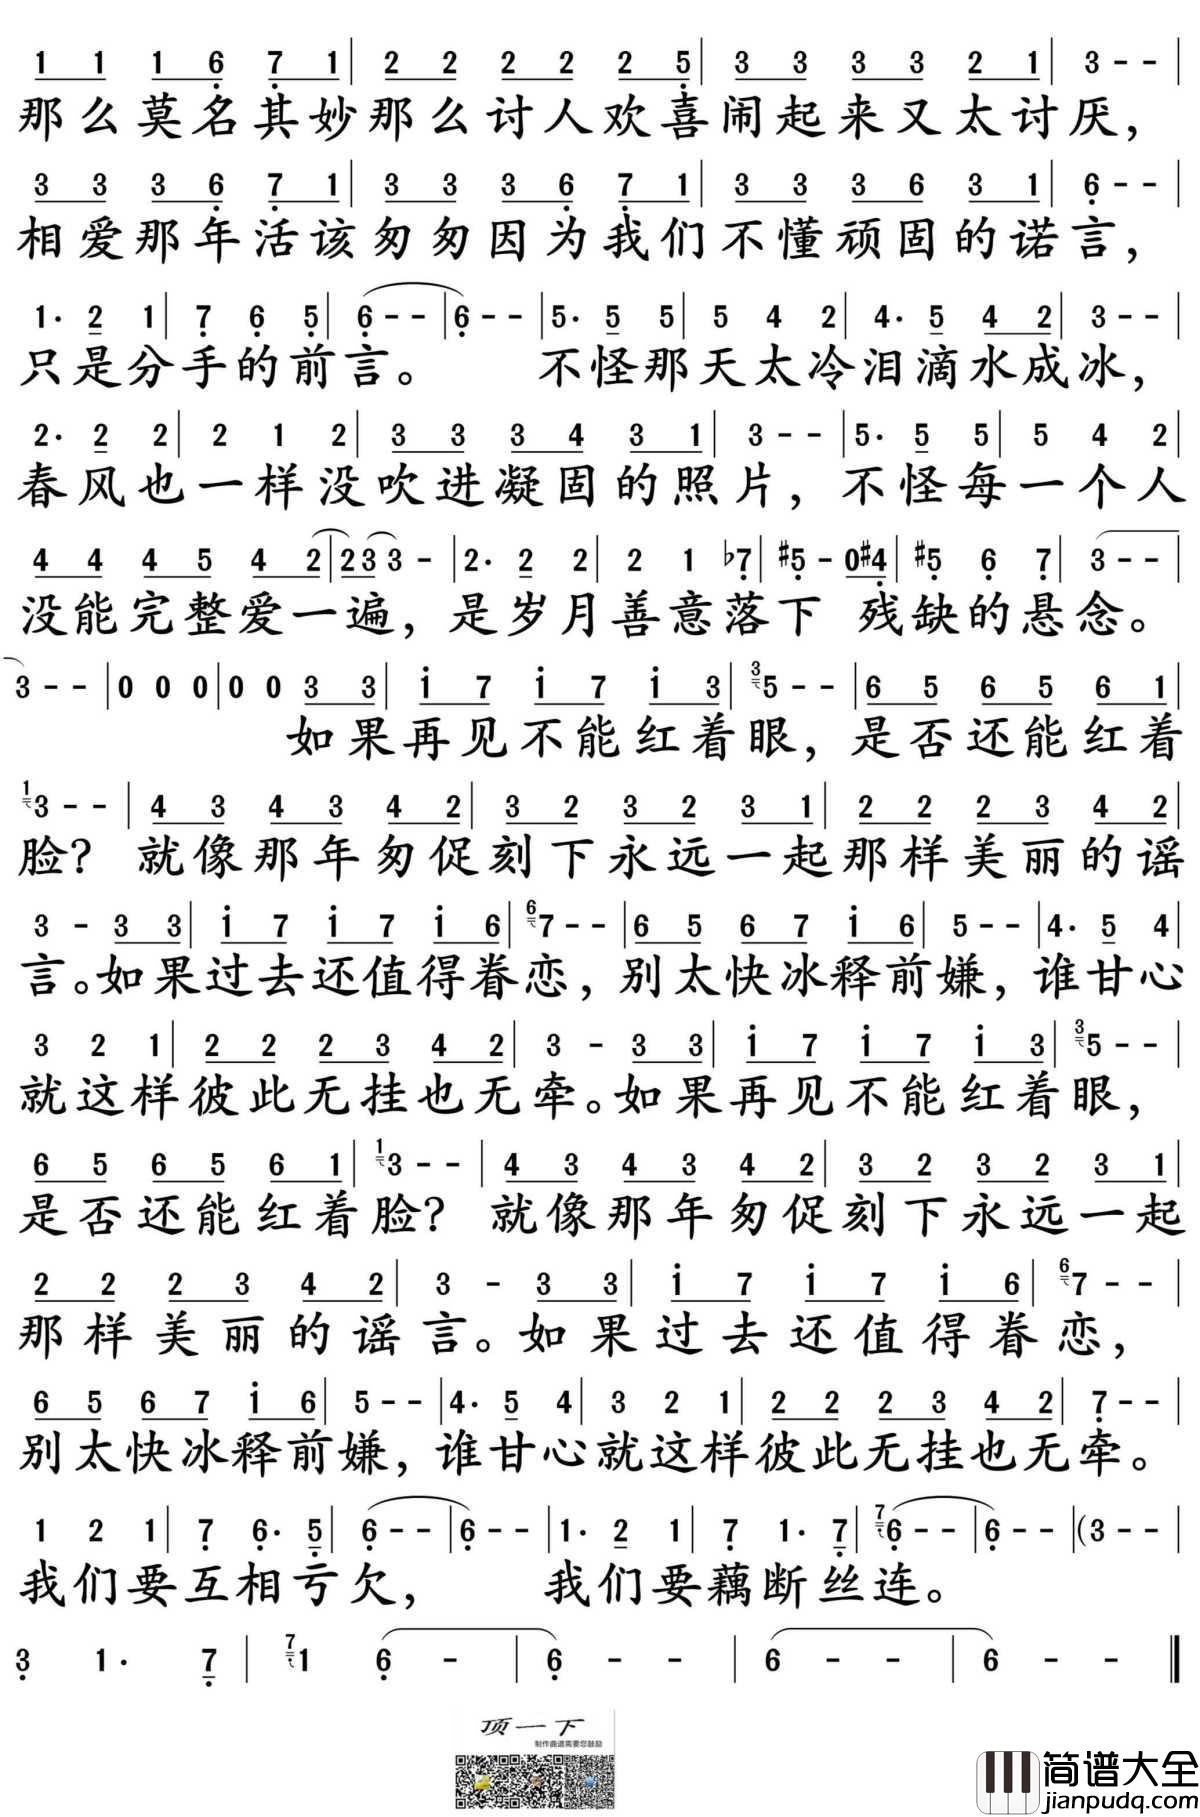 1 1 1 6 7 1 | 2 2 2 2 2 5 | 3 3 3 3 2 1 | 3 - - |
那么莫名其妙那么讨人欢喜闹起来又太讨厌，
3 3 3 6 7 1 | 3 3 3 6 7 1 | 3 3 3 6 3 1 | 6 - - |
相爱那年活该匆匆因为我们不懂顽固的诺言，
1· 2 1 | 7 6 5 | 6 - - | 6 - - | 5· 5 5 | 5 4 2 | 4· 5 4 2 | 3 - - |
只是分手的前言。 不怪那天太冷泪滴水成冰，
2· 2 2 | 2 1 2 | 3 3 3 4 3 1 | 3 - - | 5· 5 5 | 5 4 2 |
春风也一样没吹进凝固的照片，不怪每一个人
4 4 4 5 4 2 | 2 3 3 - | 2· 2 2 | 2 1 ♭7 | #5 - 0 #4 | #5 6 7 | 3 - - |
没能完整爱一遍，是岁月善意落下 残缺的悬念。
3 - - | 0 0 0 | 0 0 3 3 | i 7 i 7 i 3 | 3 5 - - | 6 5 6 5 6 1 |
如果再见不能红着眼，是否还能红着
1 3 - - | 4 3 4 3 4 2 | 3 2 3 2 3 1 | 2 2 2 3 4 2 |
脸？ 就像那年匆促刻下永远一起那样美丽的谣
3 - 3 3 | i 7 i 7 i 6 | 6 7 - - | 6 5 6 7 i 6 | 5 - - | 4· 5 4 |
言。如果过去还值得眷恋，别太快冰释前嫌，谁甘心
3 2 1 | 2 2 2 3 4 2 | 3 - 3 3 | i 7 i 7 i 3 | 3 5 - - |
就这样彼此无挂也无牵。如果再见不能红着眼，
6 5 6 5 6 1 | 1 3 - - | 4 3 4 3 4 2 | 3 2 3 2 3 1 |
是否还能红着脸？ 就像那年匆促刻下永远一起
2 2 2 3 4 2 | 3 - 3 3 | i 7 i 7 i 6 | 6 7 - - |
那样美丽的谣言。如果过去还值得眷恋，
6 5 6 7 i 6 | 5 - - | 4· 5 4 | 3 2 1 | 2 2 2 3 4 2 | 7 - - |
别太快冰释前嫌，谁甘心就这样彼此无挂也无牵。
1 2 1 | 7 6· 5 | 6 - - | 6 - - | 1· 2 1 | 7 1· 7 | 7 6 - - | 6 - - | (3 - - |
我们要互相亏欠， 我们要藕断丝连。
3 1· 7 | 7 1 6 - | 6 - - | 6 - - | 6 - - ‖
顶一下
制作曲谱需要您鼓励
简谱大全
jianpudq.com